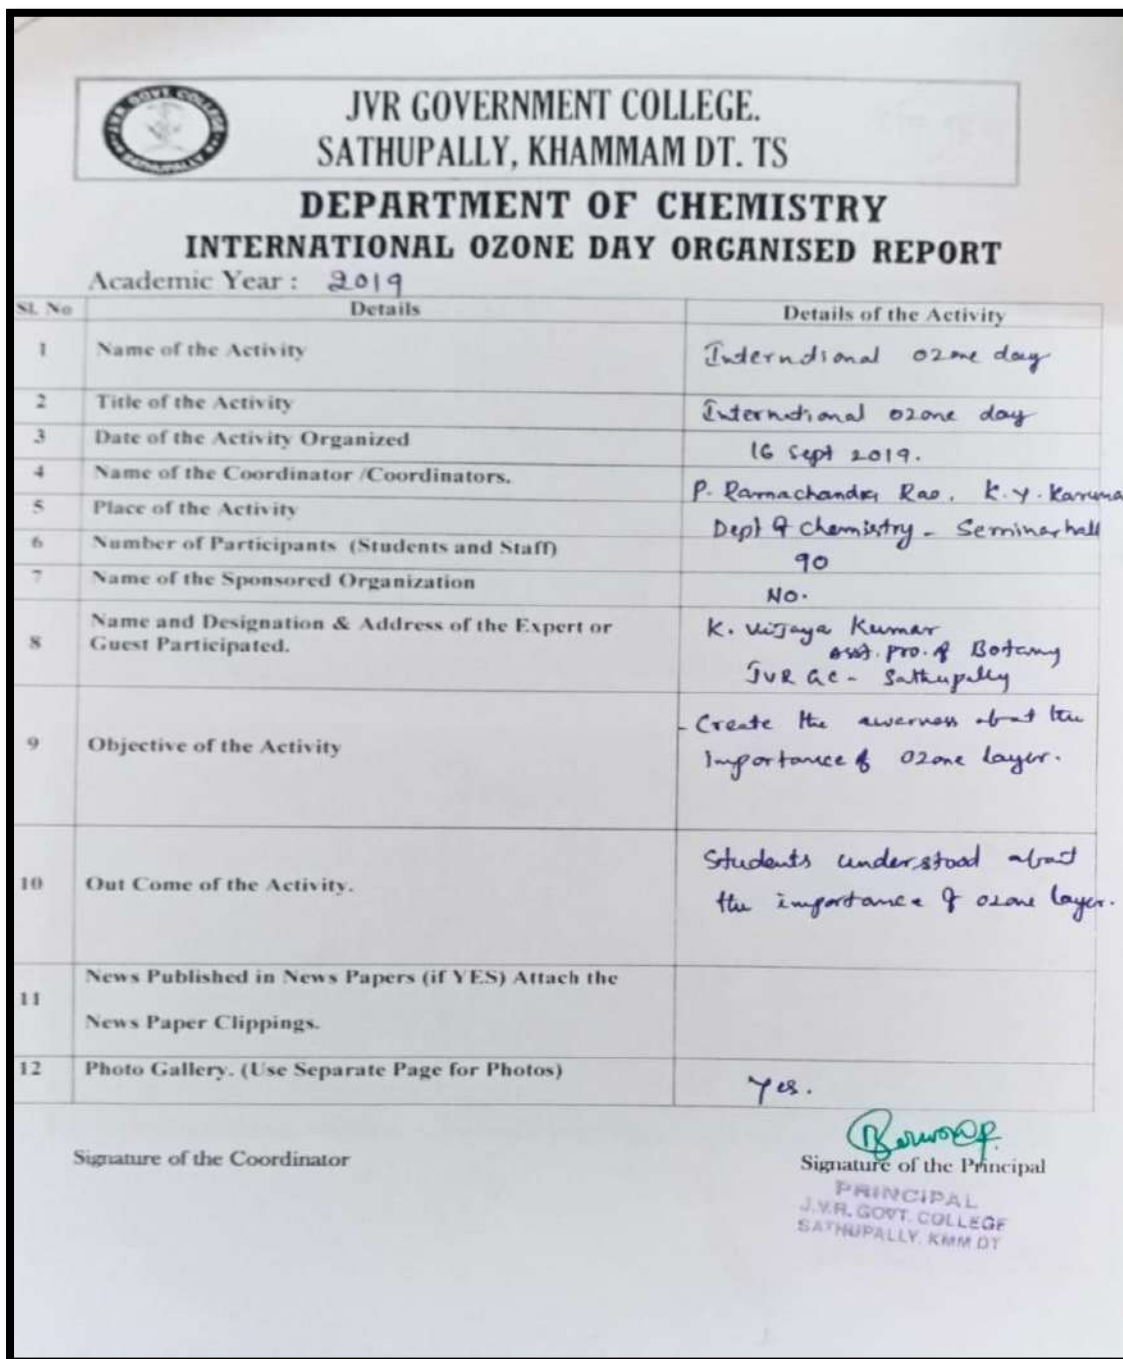 JVR GOVT COLLEGE
SATHUPALLY
JVR GOVERNMENT COLLEGE.
SATHUPALLY, KHAMMAM DT. TS
DEPARTMENT OF CHEMISTRY
INTERNATIONAL OZONE DAY ORGANISED REPORT
Academic Year : 2019
Sl. No Details Details of the Activity
1 Name of the Activity International ozone day
2 Title of the Activity International ozone day
3 Date of the Activity Organized 16 Sept 2019.
4 Name of the Coordinator /Coordinators. P. Ramachandra Rao, K.Y. Karuna
5 Place of the Activity Dept of chemistry - Seminar hall
6 Number of Participants (Students and Staff) 90
7 Name of the Sponsored Organization No.
8 Name and Designation & Address of the Expert or K. Vijaya Kumar
Guest Participated. asst. pro. of Botany
JVR GC - Sathupally
9 Objective of the Activity - Create the awerness about the
Importance of Ozone layer.
10 Out Come of the Activity. Students understood about
the importance of ozone layer.
11 News Published in News Papers (if YES) Attach the
News Paper Clippings.
12 Photo Gallery. (Use Separate Page for Photos) Yes.
Signature of the Coordinator Signature of the Principal
PRINCIPAL
J.V.R. GOVT. COLLEGE
SATHUPALLY. KMM DT